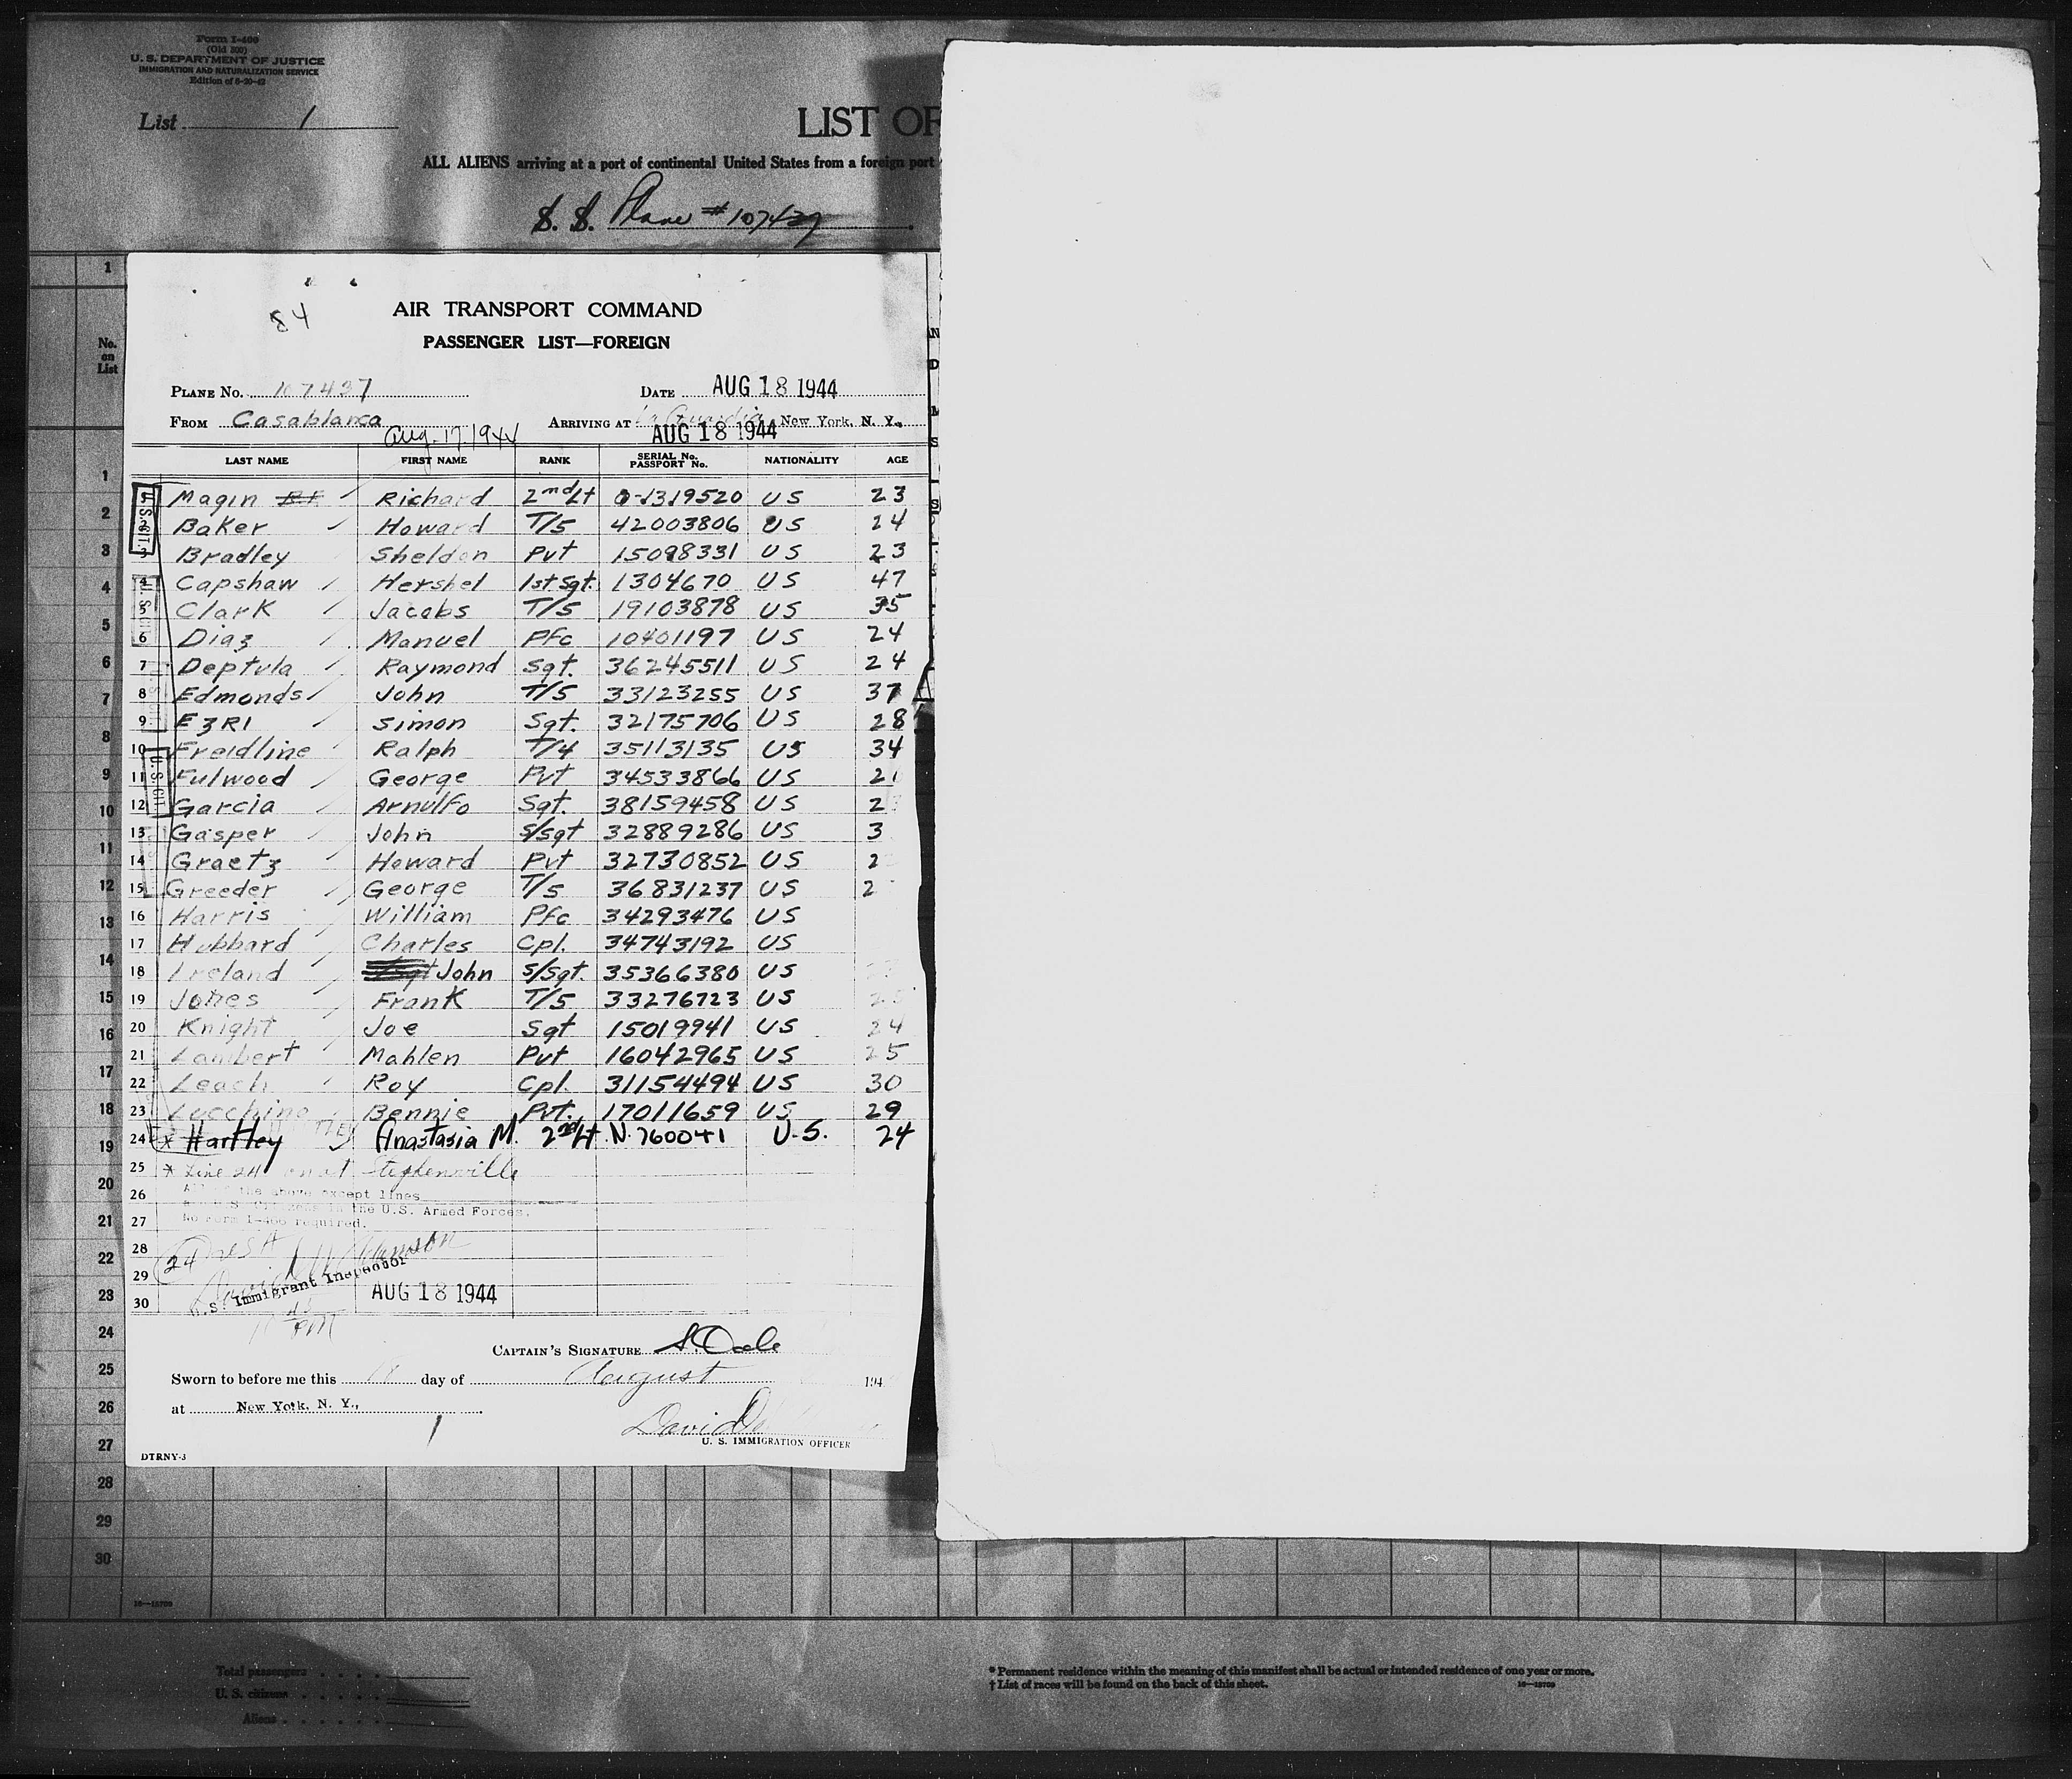 Form I-466
(Old 500)
U. S. DEPARTMENT OF JUSTICE
IMMIGRATION AND NATURALIZATION SERVICE
Edition of 6-20-42
List 1
LIST OF
ALL ALIENS arriving at a port of continental United States from a foreign port
S. S. Plane # 107437
No. on List
84
AIR TRANSPORT COMMAND
PASSENGER LIST—FOREIGN
PLANE No. 107437 DATE AUG 18 1944
FROM Casablanca ARRIVING AT La Guardia New York, N. Y.,
Aug. 17. 1944 AUG 18 1944
LAST NAME FIRST NAME RANK SERIAL No. PASSPORT No. NATIONALITY AGE
Magin Richard 2nd Lt 0-1319520 US 23
Baker Howard T/5 42003806 US 24
3 Bradley Sheldon Pvt 15098331 US 23
4 Capshaw Hershel 1st Sgt. 1304670 US 47
5 Clark Jacobs T/5 19103878 US 35
6 Diaz Manuel Pfc 10401197 US 24
7 Deptula Raymond Sgt. 36245511 US 24
8 Edmonds John T/5 33123255 US 37
9 EzRI Simon Sgt. 32175706 US 28
10 Freidline Ralph T/4 35113135 US 34
11 Fulwood George Pvt 34533866 US 21
12 Garcia Arnulfo Sgt. 38159458 US 2
13 Gasper John S/Sgt 32889286 US 3
14 Graetz Howard Pvt 32730852 US 2
15 Greeder George T/5 36831237 US 2
16 Harris William Pfc 34293476 US
17 Hubbard Charles Cpl. 34743192 US
18 Ireland John S/Sgt. 35366380 US
19 Jones Frank T/5 33276723 US
20 Knight Joe Sgt 15019941 US 24
21 Lambert Mahlen Pvt 16042965 US 25
22 Leach Roy Cpl. 31154494 US 30
23 Lucchino Bennie Pvt. 17011659 US 29
24 * Hartley Anastasia M. 2nd Lt N. 760041 U.S. 24
25 * Line 24 on at Stephenville
26 All the above except lines
are U.S. Citizens in the U.S. Armed Forces.
27 No Form I-466 required.
28
29 24
U.S. Immigrant Inspector
30 AUG 18 1944
PM
CAPTAIN'S SIGNATURE
Sworn to before me this 18 day of August 194
at New York, N. Y.,
David
U. S. IMMIGRATION OFFICER
DTRNY-3
16—15709
Total passengers
U. S. citizens
Aliens
* Permanent residence within the meaning of this manifest shall be actual or intended residence of one year or more.
† List of races will be found on the back of this sheet. 16—15709